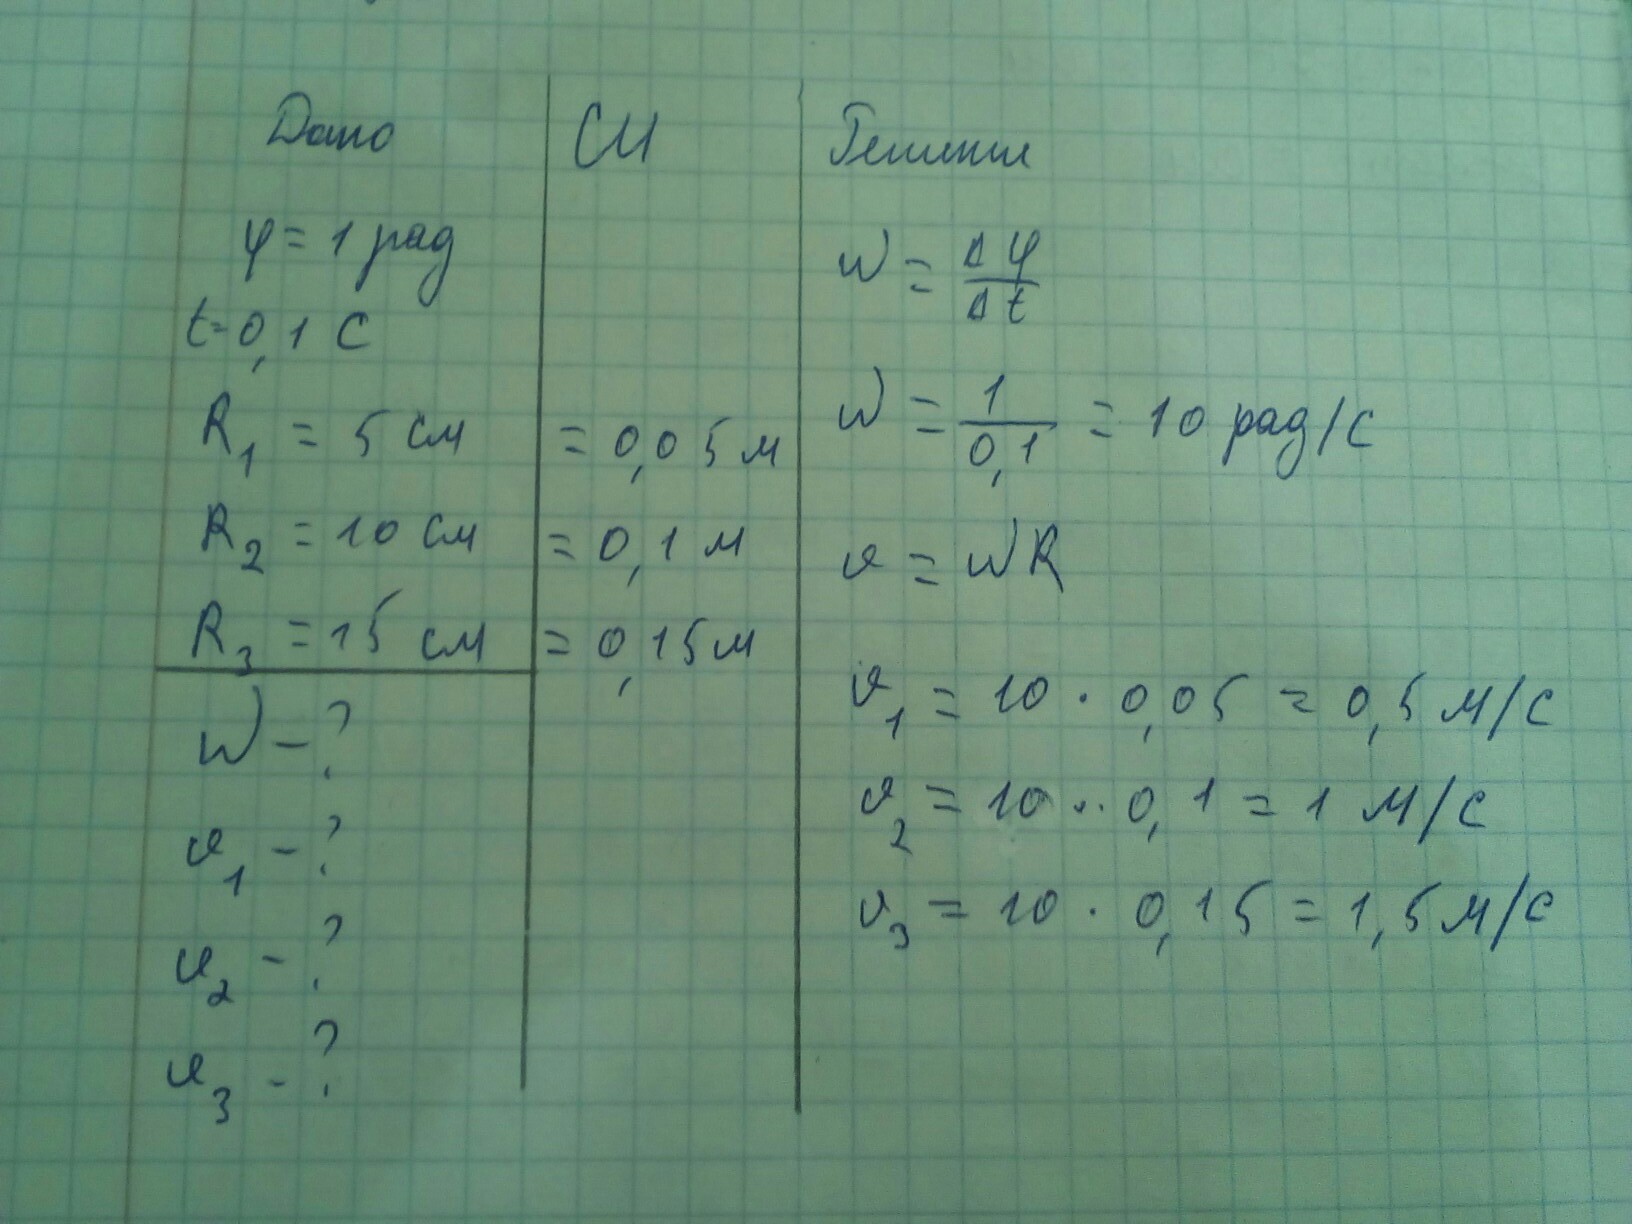 Дано
φ = 1 рад
t = 0,1 с
R₁ = 5 см
R₂ = 10 см
R₃ = 15 см
ω – ?
υ₁ – ?
υ₂ – ?
υ₃ – ?
СИ
= 0,05 м
= 0,1 м
= 0,15 м
Решение
ω = Δφ/Δt
ω = 1/0,1 = 10 рад/с
υ = ωR
υ₁ = 10 · 0,05 = 0,5 м/с
υ₂ = 10 · 0,1 = 1 м/с
υ₃ = 10 · 0,15 = 1,5 м/с